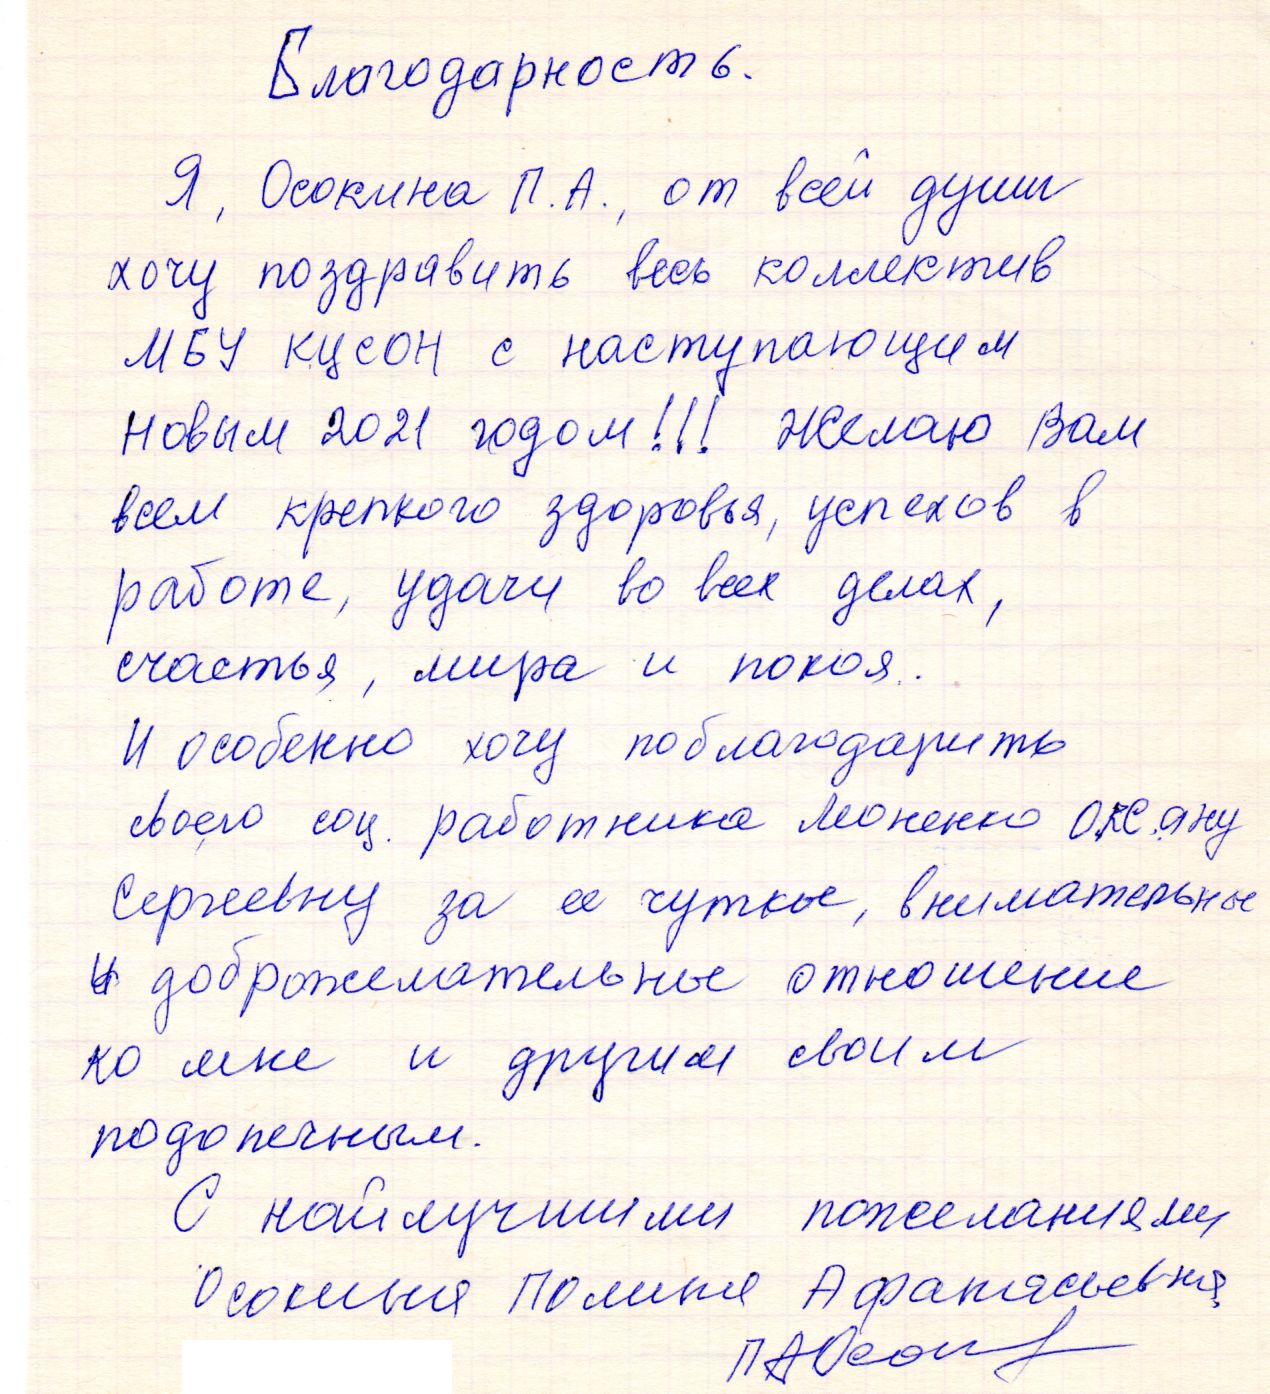 Благодарность.
Я, Осокина П.А., от всей души
хочу поздравить весь коллектив
МБУ КЦСОН с наступающим
Новым 2021 годом!!! Желаю Вам
всем крепкого здоровья, успехов в
работе, удачи во всех делах,
счастья, мира и покоя..
И особенно хочу поблагодарить
своего соц. работника Моненко Оксану
Сергеевну за ее чуткое, внимательные
и доброжелательное отношение
ко мне и другим своим
подопечным.
С наилучшими пожеланиями
Осокина Полина Афанасьевна